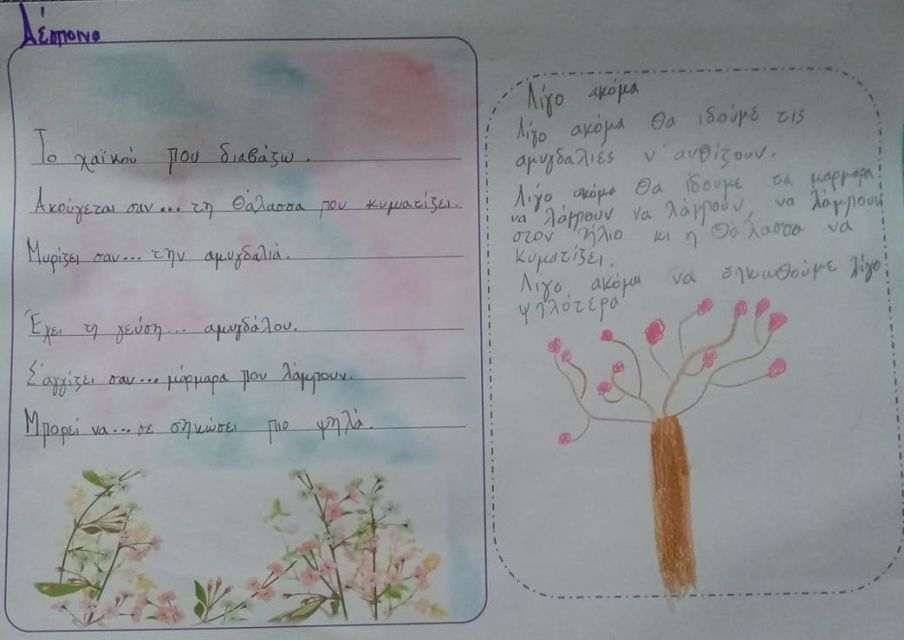 Δέσποινα
Το χαϊκού που διαβάζω.
Ακούγεται σαν... τη θάλασσα που κυματίζει.
Μυρίζει σαν... την αμυγδαλιά.
Έχει τη γεύση... αμυγδάλου.
Σ'αγγίζει σαν... μάρμαρα που λάμπουν.
Μπορεί να... σε σηκώσει πιο ψηλά.
Λίγο ακόμα
Λίγο ακόμα θα ιδούμε τις
αμυγδαλιές ν' ανθίζουν.
Λίγο ακόμα θα ιδούμε τα μάρμαρα
να λάμπουν να λάμπουν, να λάμπουν
στον ήλιο κι η θάλασσα να
κυματίζει.
Λίγο ακόμα να σηκωθούμε λίγο
ψηλότερα